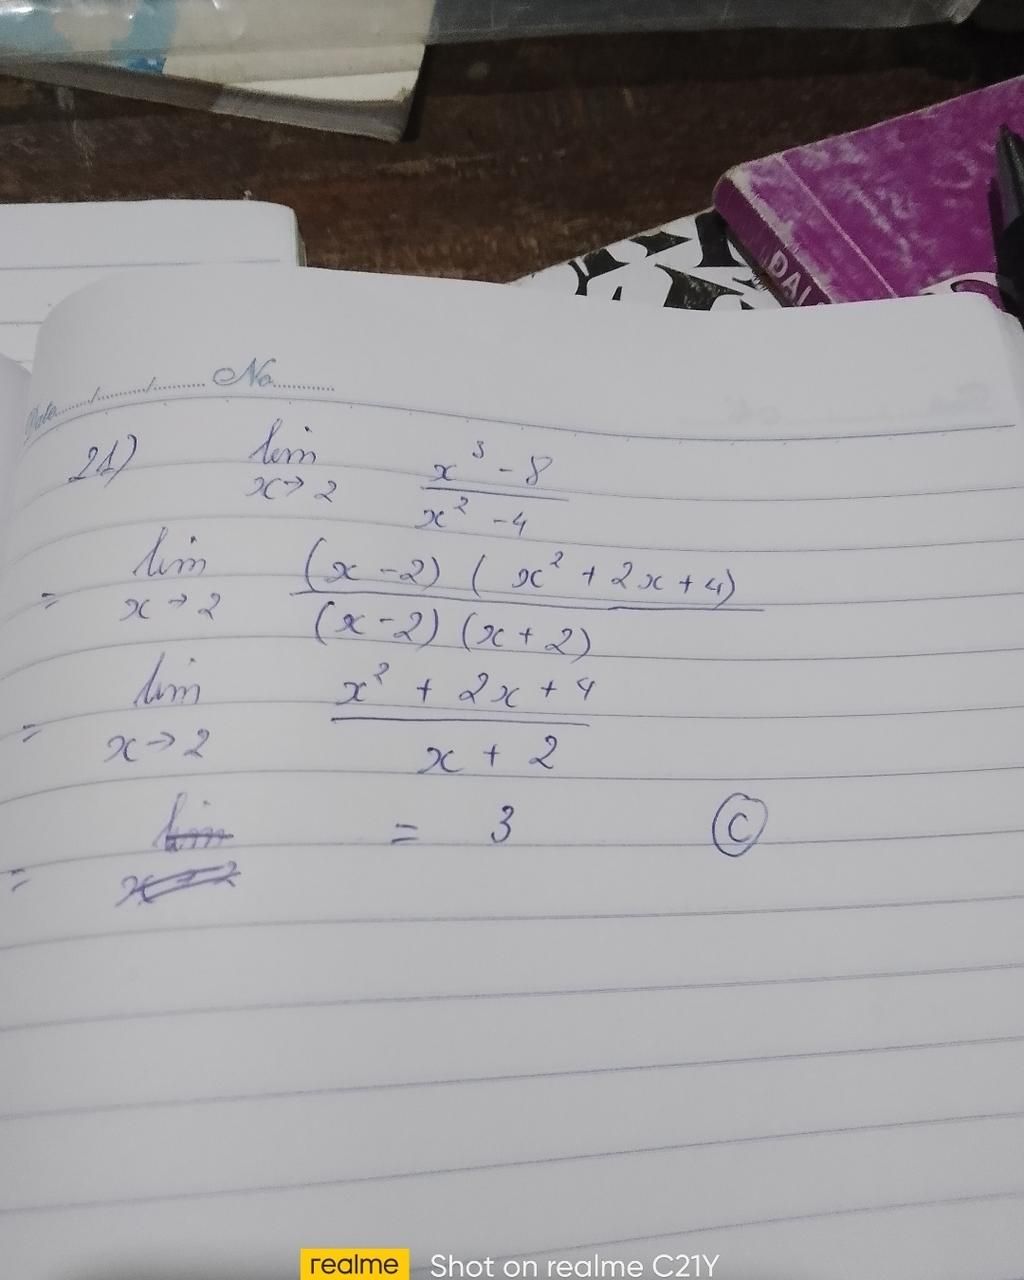 DAL
Date ...... / ...... / ...... No ............
21) lim x→2 x³ - 8 / x² - 4
= lim x→2 (x - 2) ( x² + 2x + 4) / (x - 2) (x + 2)
= lim x→2 x² + 2x + 4 / x + 2
= lim x→2 = 3 C
realme Shot on realme C21Y